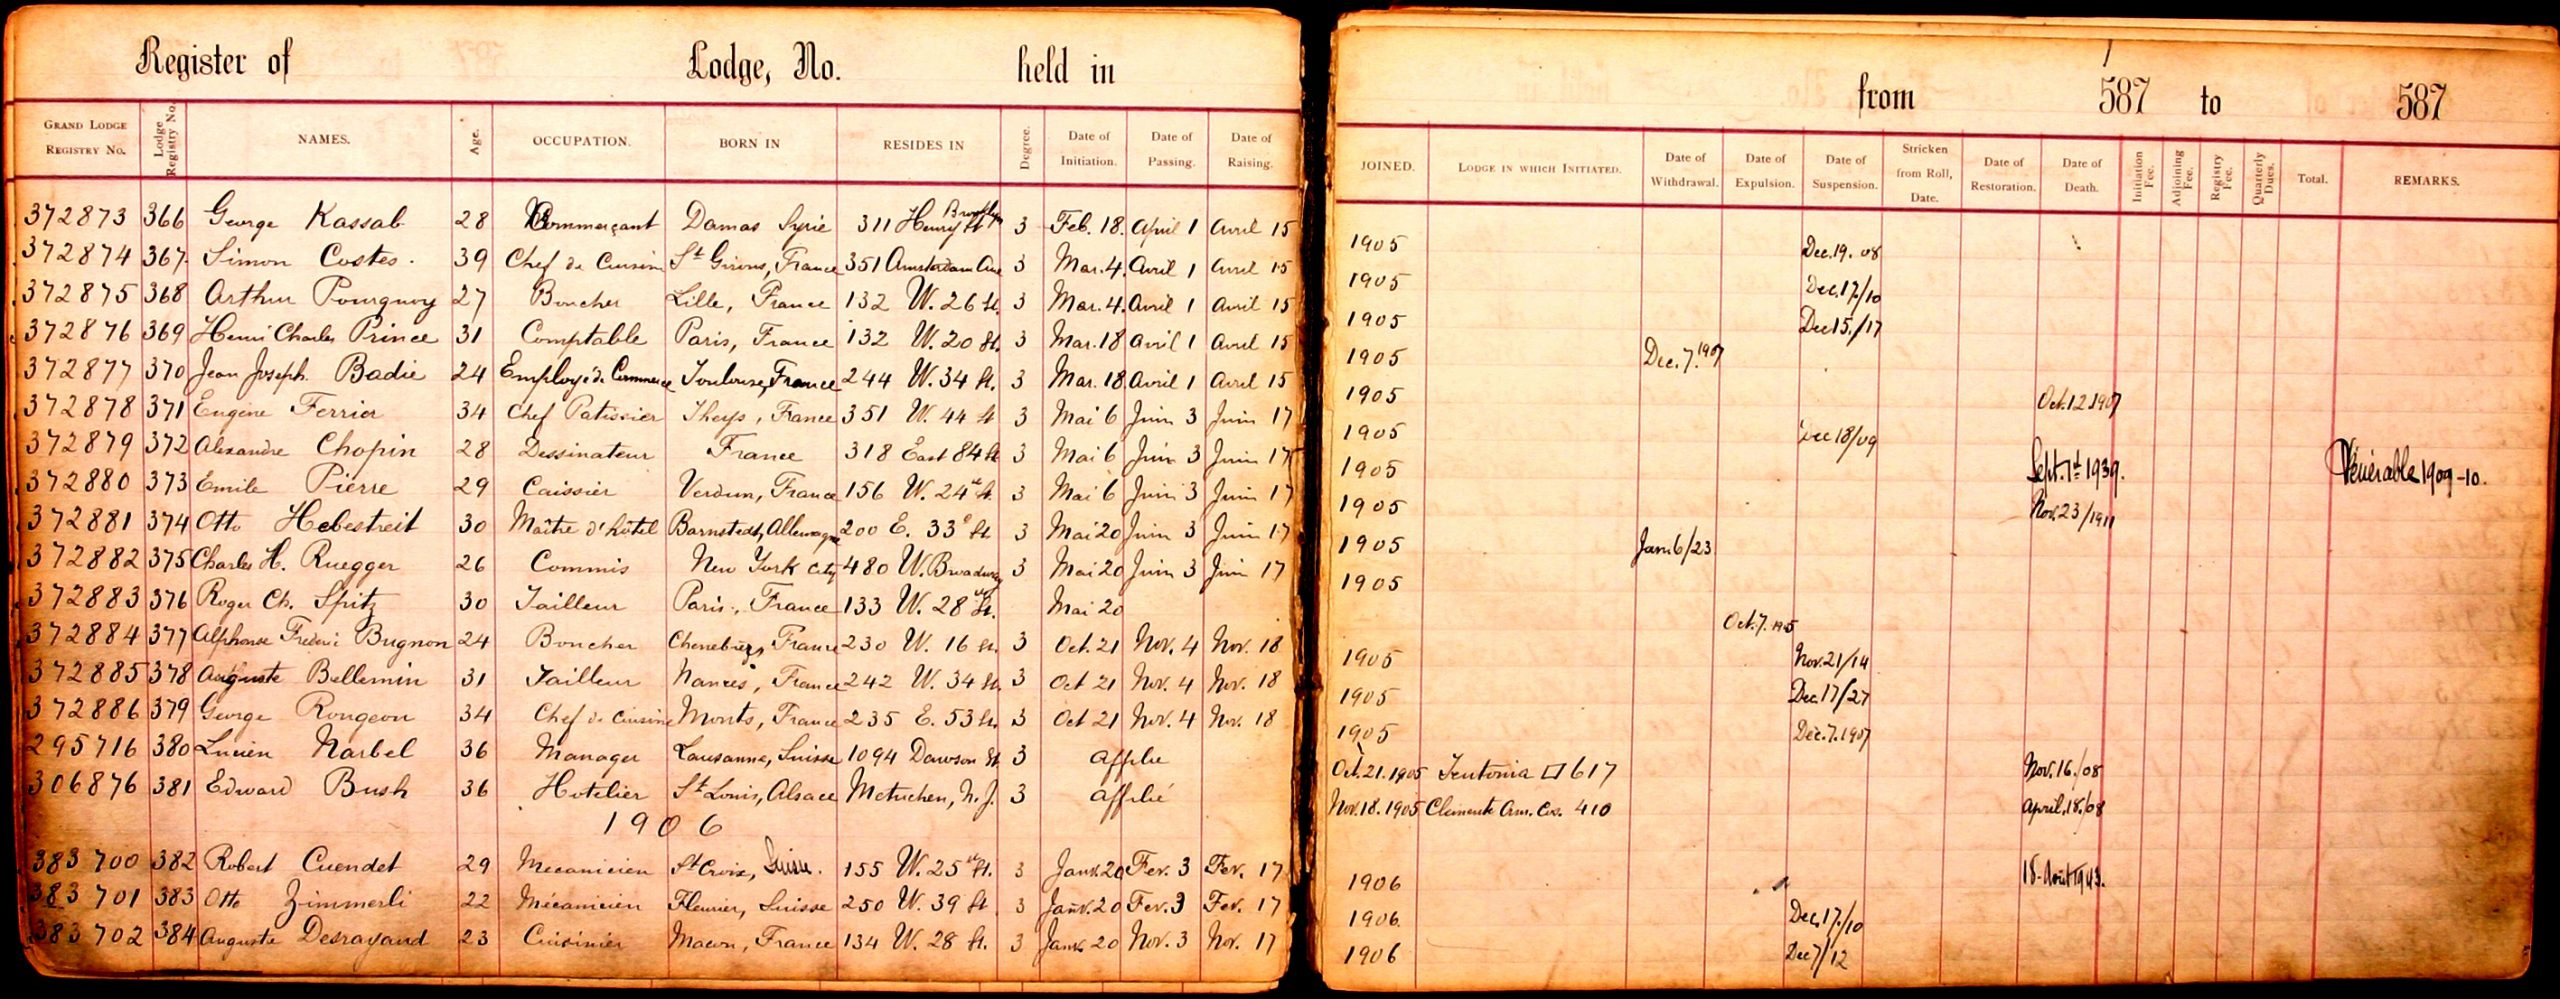 Register of Lodge, No. held in
from 587 to 587
GRAND LODGE REGISTRY NO. Lodge Registry No. NAMES. Age. OCCUPATION. BORN IN RESIDES IN Degree. Date of Initiation. Date of Passing. Date of Raising.
JOINED. LODGE IN WHICH INITIATED. Date of Withdrawal. Date of Expulsion. Date of Suspension. Stricken from Roll, Date. Date of Restoration. Date of Death. Initiation Fee. Adjoining Fee. Registry Fee. Quarterly Dues. Total. REMARKS.
372873 366 George Kassab 28 Commerçant Damas Syrie 311 Henry St Brooklyn 3 Feb. 18. April 1 Avril 15
372874 367 Simon Costes. 39 Chef de Cuisine St Girons, France 351 Amsterdam Ave 3 Mar. 4. Avril 1 Avril 15
372875 368 Arthur Pourquoy 27 Boucher Lille, France 132 W. 26 St. 3 Mar. 4. Avril 1 Avril 15
372876 369 Henri Charles Prince 31 Comptable Paris, France 132 W. 20 St. 3 Mar. 18 Avril 1 Avril 15
372877 370 Jean Joseph Badie 24 Employé de Commerce Toulouse, France 244 W. 34 St. 3 Mar. 18 Avril 1 Avril 15
372878 371 Eugène Ferrier 34 Chef Patissier Theys, France 351 W. 44 St 3 Mai 6 Juin 3 Juin 17
372879 372 Alexandre Chopin 28 Dessinateur France 318 East 84 St 3 Mai 6 Juin 3 Juin 17
372880 373 Emile Pierre 29 Caissier Verdun, France 156 W. 24 St. 3 Mai 6 Juin 3 Juin 17
372881 374 Otto Hebestreit 30 Maître d'hôtel Barnstedt, Allemagne 200 E. 33e St. 3 Mai 20 Juin 3 Juin 17
372882 375 Charles H. Ruegger 26 Commis New York City 480 W. Broadway 3 Mai 20 Juin 3 Juin 17
372883 376 Roger Ch. Spitz 30 Tailleur Paris, France 133 W. 28 St. Mai 20
372884 377 Alphonse Frederic Bugnon 24 Boucher France 230 W. 16 St. 3 Oct. 21 Nov. 4 Nov. 18
372885 378 Auguste Bellemin 31 Tailleur Nances, France 242 W. 34 St. 3 Oct 21 Nov. 4 Nov. 18
372886 379 George Rongeon 34 Chef de Cuisine Monts, France 235 E. 53 St. 3 Oct 21 Nov. 4 Nov. 18
295716 380 Lucien Narbel 36 Manager Lausanne, Suisse 1094 Dawson St 3 Affilie
306876 381 Edward Bush 36 Hotelier St Louis, Alsace Metuchen, N. J. 3 Affilié
1906
383700 382 Robert Cuendet 29 Mecanicien St Croix, Suisse. 155 W. 25 St. 3 Janv. 20 Fev. 3 Fev. 17
383701 383 Otto Zimmerli 22 Mécanicien Fleurier, Suisse 250 W. 39 St. 3 Janv. 20 Fev. 3 Fev. 17
383702 384 Auguste Desrayaud 23 Cuisinier Macon, France 134 W. 28 St. 3 Janv. 20 Nov. 3 Nov. 17
1905 Dec. 19. 08
1905 Dec. 17/10
1905 Dec 15./17
1905 Dec. 7. 1907
1905 Oct. 12 1907
1905 Dec 18/09
1905 Sept. 1st 1939. Vénérable 1909-10.
1905 Nov. 23/1911
1905 Janv. 6/23
1905
Oct. 7. 1905
1905 Nov. 21/14
1905 Dec. 17/27
1905 Dec. 7. 1907
Oct. 21. 1905 Teutonia 617 Nov. 16./08
Nov. 18. 1905 Clemente Am. Cos. 410 April. 18./08
1906 18 Août 1943.
1906. Dec. 17./10
1906 Dec 7/12